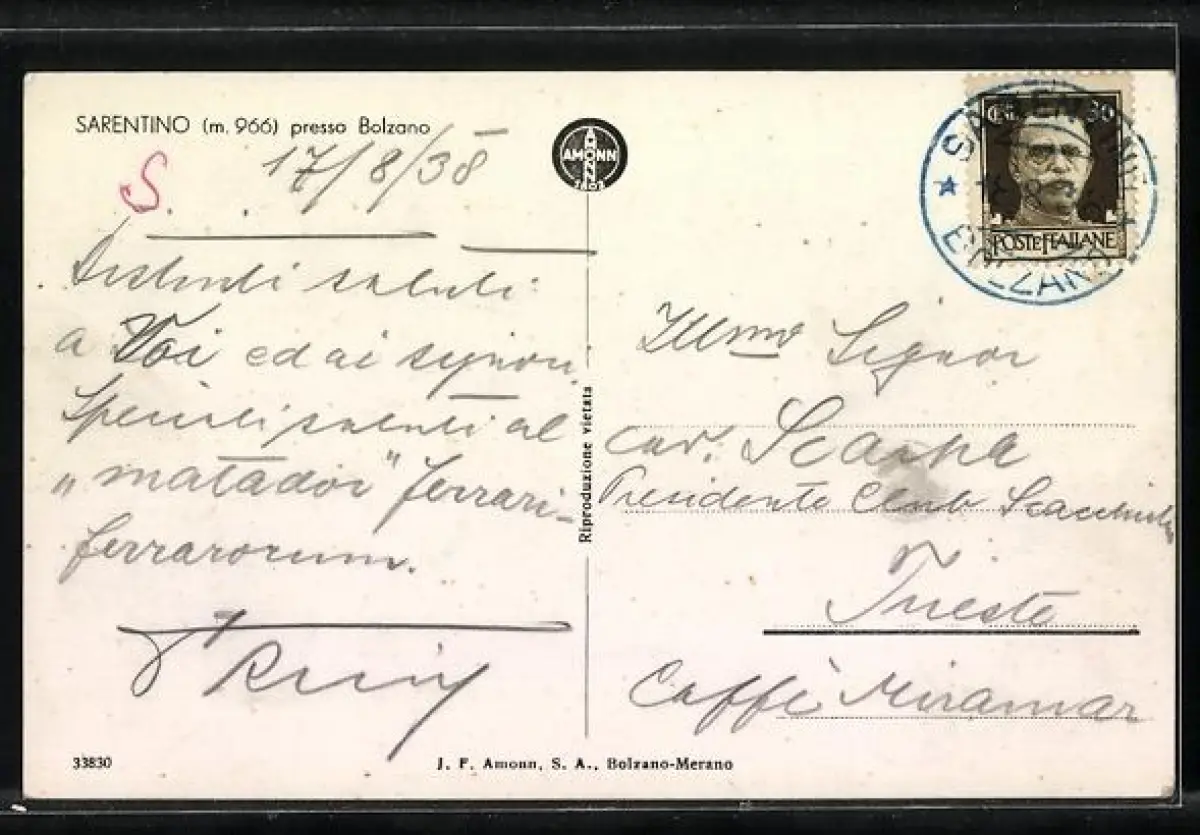 SARENTINO (m. 966) presso Bolzano
17/8/38
S.
AMONN
Distinti saluti
a Voi ed ai signori
Speciali saluti al
„matador" Ferrari-
ferrarorum.
33830
Riproduzione vietata
J. F. Amonn, S. A., Bolzano-Merano
30
POSTE ITALIANE
Illmo Signor
cav. Scarpa
Presidente Club Scacchistico
Trieste
Caffè Miramar